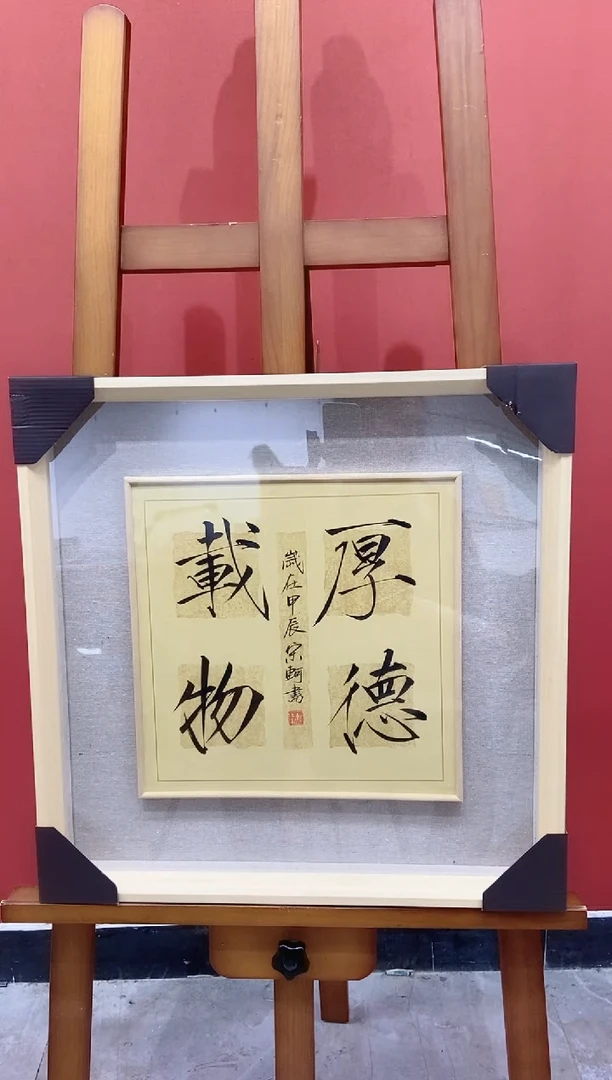 厚德
載物
歲在甲辰宗軻書